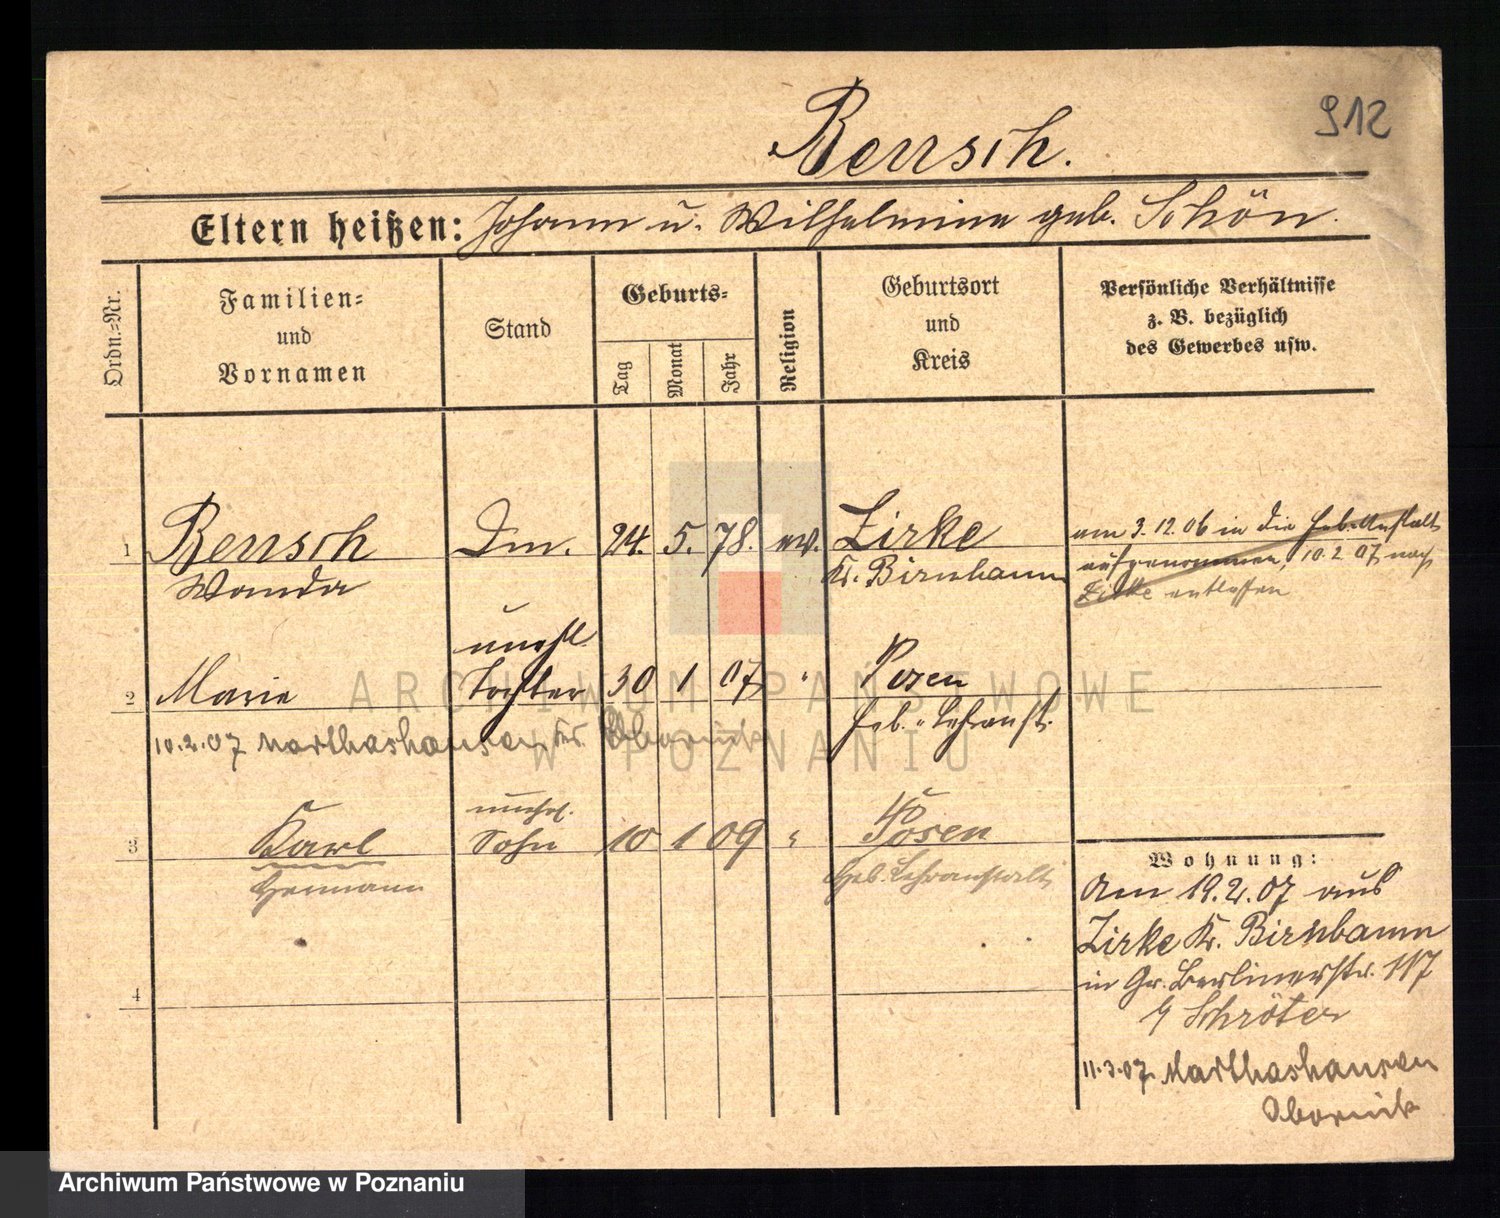 912
Bensch.
Eltern heißen: Johann u. Wilhelmine geb. Schön.
Ordn.=Nr.
Familien=
und
Vornamen
Stand
Geburts=
Tag
Monat
Jahr
Religion
Geburtsort
und
Kreis
Persönliche Verhältnisse
z. B. bezüglich
des Gewerbes usw.
1 Bensch Dm. 24. 5. 78. ev. Zirke
Wanda Kr. Birnbaum
am 3.12.06 in die Heb. Anstalt
aufgenommen, 10.2.07 nach
Zirke entlassen
unehl.
2 Marie Tochter 30 1 07 " Posen
Heb. Lehranst.
10.2.07 Marthashausen Kr. Obornik
unehel.
3 Karl Sohn 10 1 09 " Posen
Hermann Heb. Lehranstalt
4
Wohnung:
Am 19.2.07 aus
Zirke Kr. Birnbaum
in Gr. Berlinerstr. 117
b/ Schröter
11.3.07 Marthashausen
Obornik
ARCHIWUM PAŃSTWOWE
W POZNANIU
Archiwum Państwowe w Poznaniu